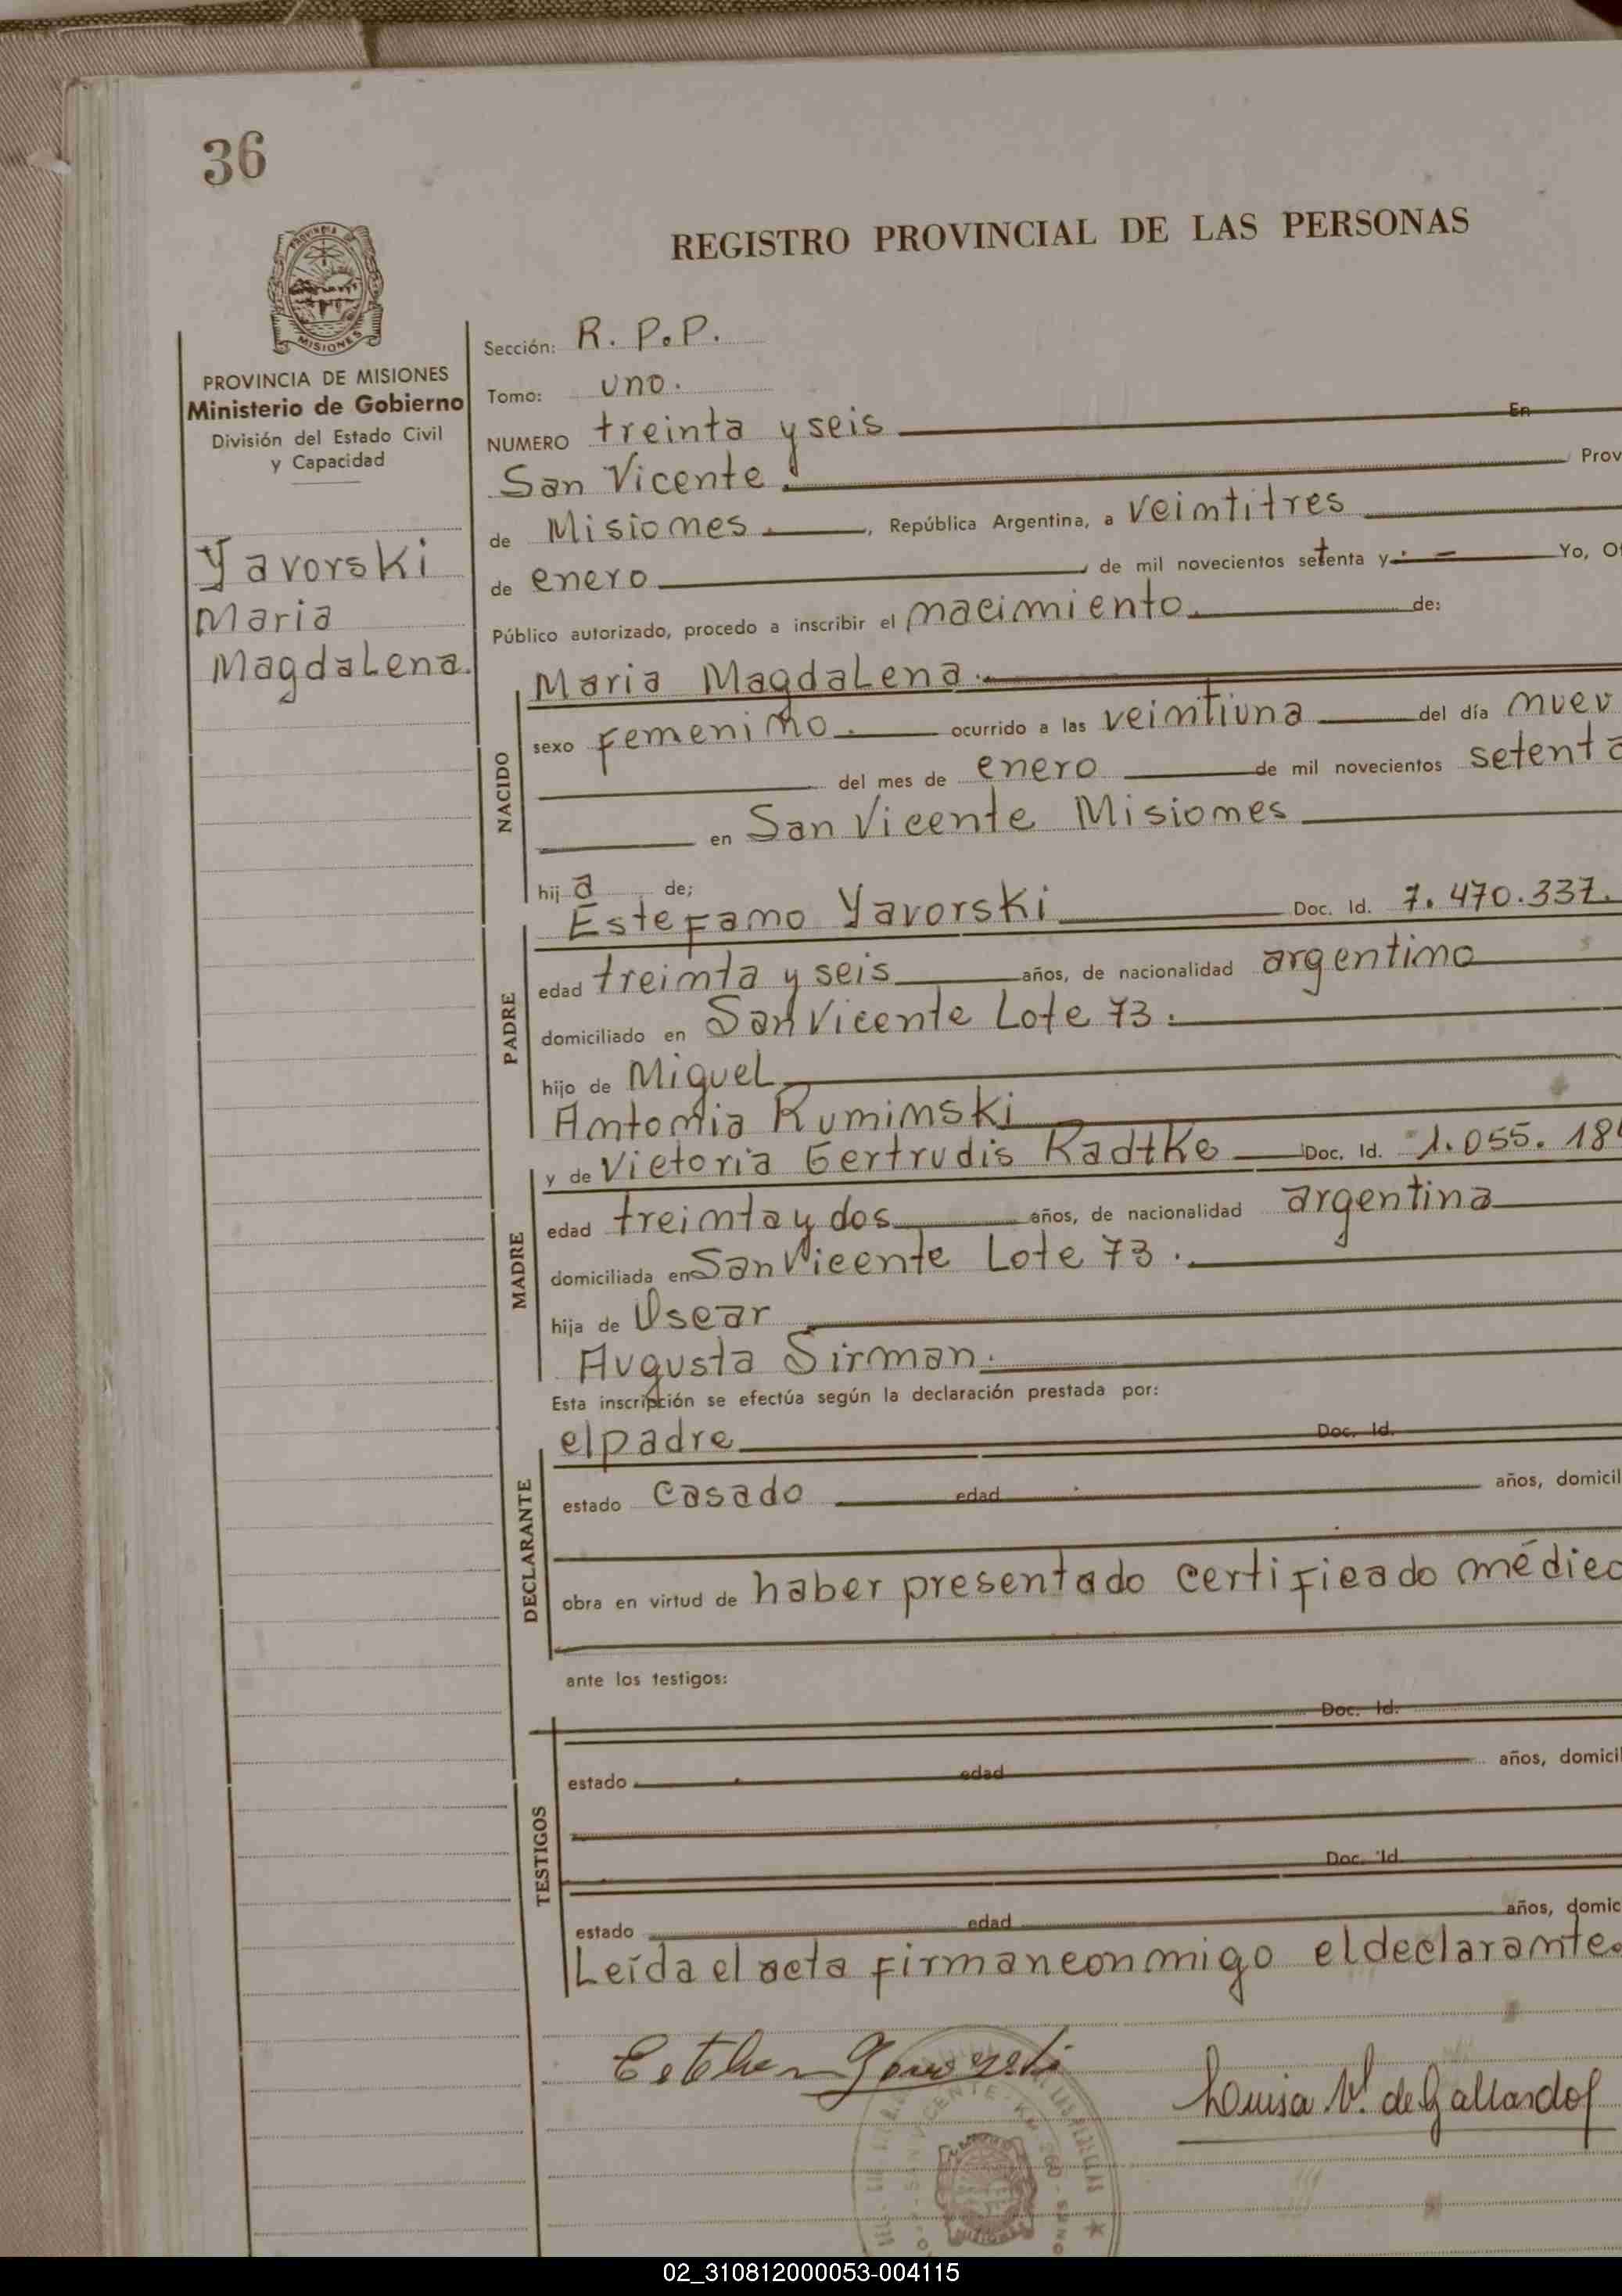 36
REGISTRO PROVINCIAL DE LAS PERSONAS
MISIONES
PROVINCIA DE MISIONES
Ministerio de Gobierno
División del Estado Civil
y Capacidad
Yavorski
Maria
Magdalena.
Sección: R. P. P.
Tomo: uno.
NUMERO treinta y seis En
San Vicente. Prov
de Misiones. , República Argentina, a veintitres
de enero , de mil novecientos setenta y . - Yo, Of
Público autorizado, procedo a inscribir el nacimiento. de:
NACIDO
Maria Magdalena.
sexo femenino. ocurrido a las veintiuna del día nuev
del mes de enero de mil novecientos setenta
en San Vicente Misiones
hij a de;
PADRE
Estefano Yavorski Doc. Id. 7.470.337.
edad treinta y seis años, de nacionalidad argentino
domiciliado en San Vicente Lote 73.
hijo de Miguel
Antonia Ruminski
MADRE
y de Victoria Gertrudis Radtke Doc. Id. 1.055.18
edad treinta y dos años, de nacionalidad argentina
domiciliada en San Vicente Lote 73.
hija de Oscar
Augusta Sirman.
Esta inscripción se efectúa según la declaración prestada por:
DECLARANTE
el padre Doc. Id.
estado casado edad años, domicil
obra en virtud de haber presentado certificado médico
ante los testigos:
TESTIGOS
Doc. Id.
estado edad años, domicil
Doc. Id
estado edad años, domic
Leída el acta firman conmigo el declarante.
Esteban Yavorski
Louisa V. de Gallardo
02_310812000053-004115